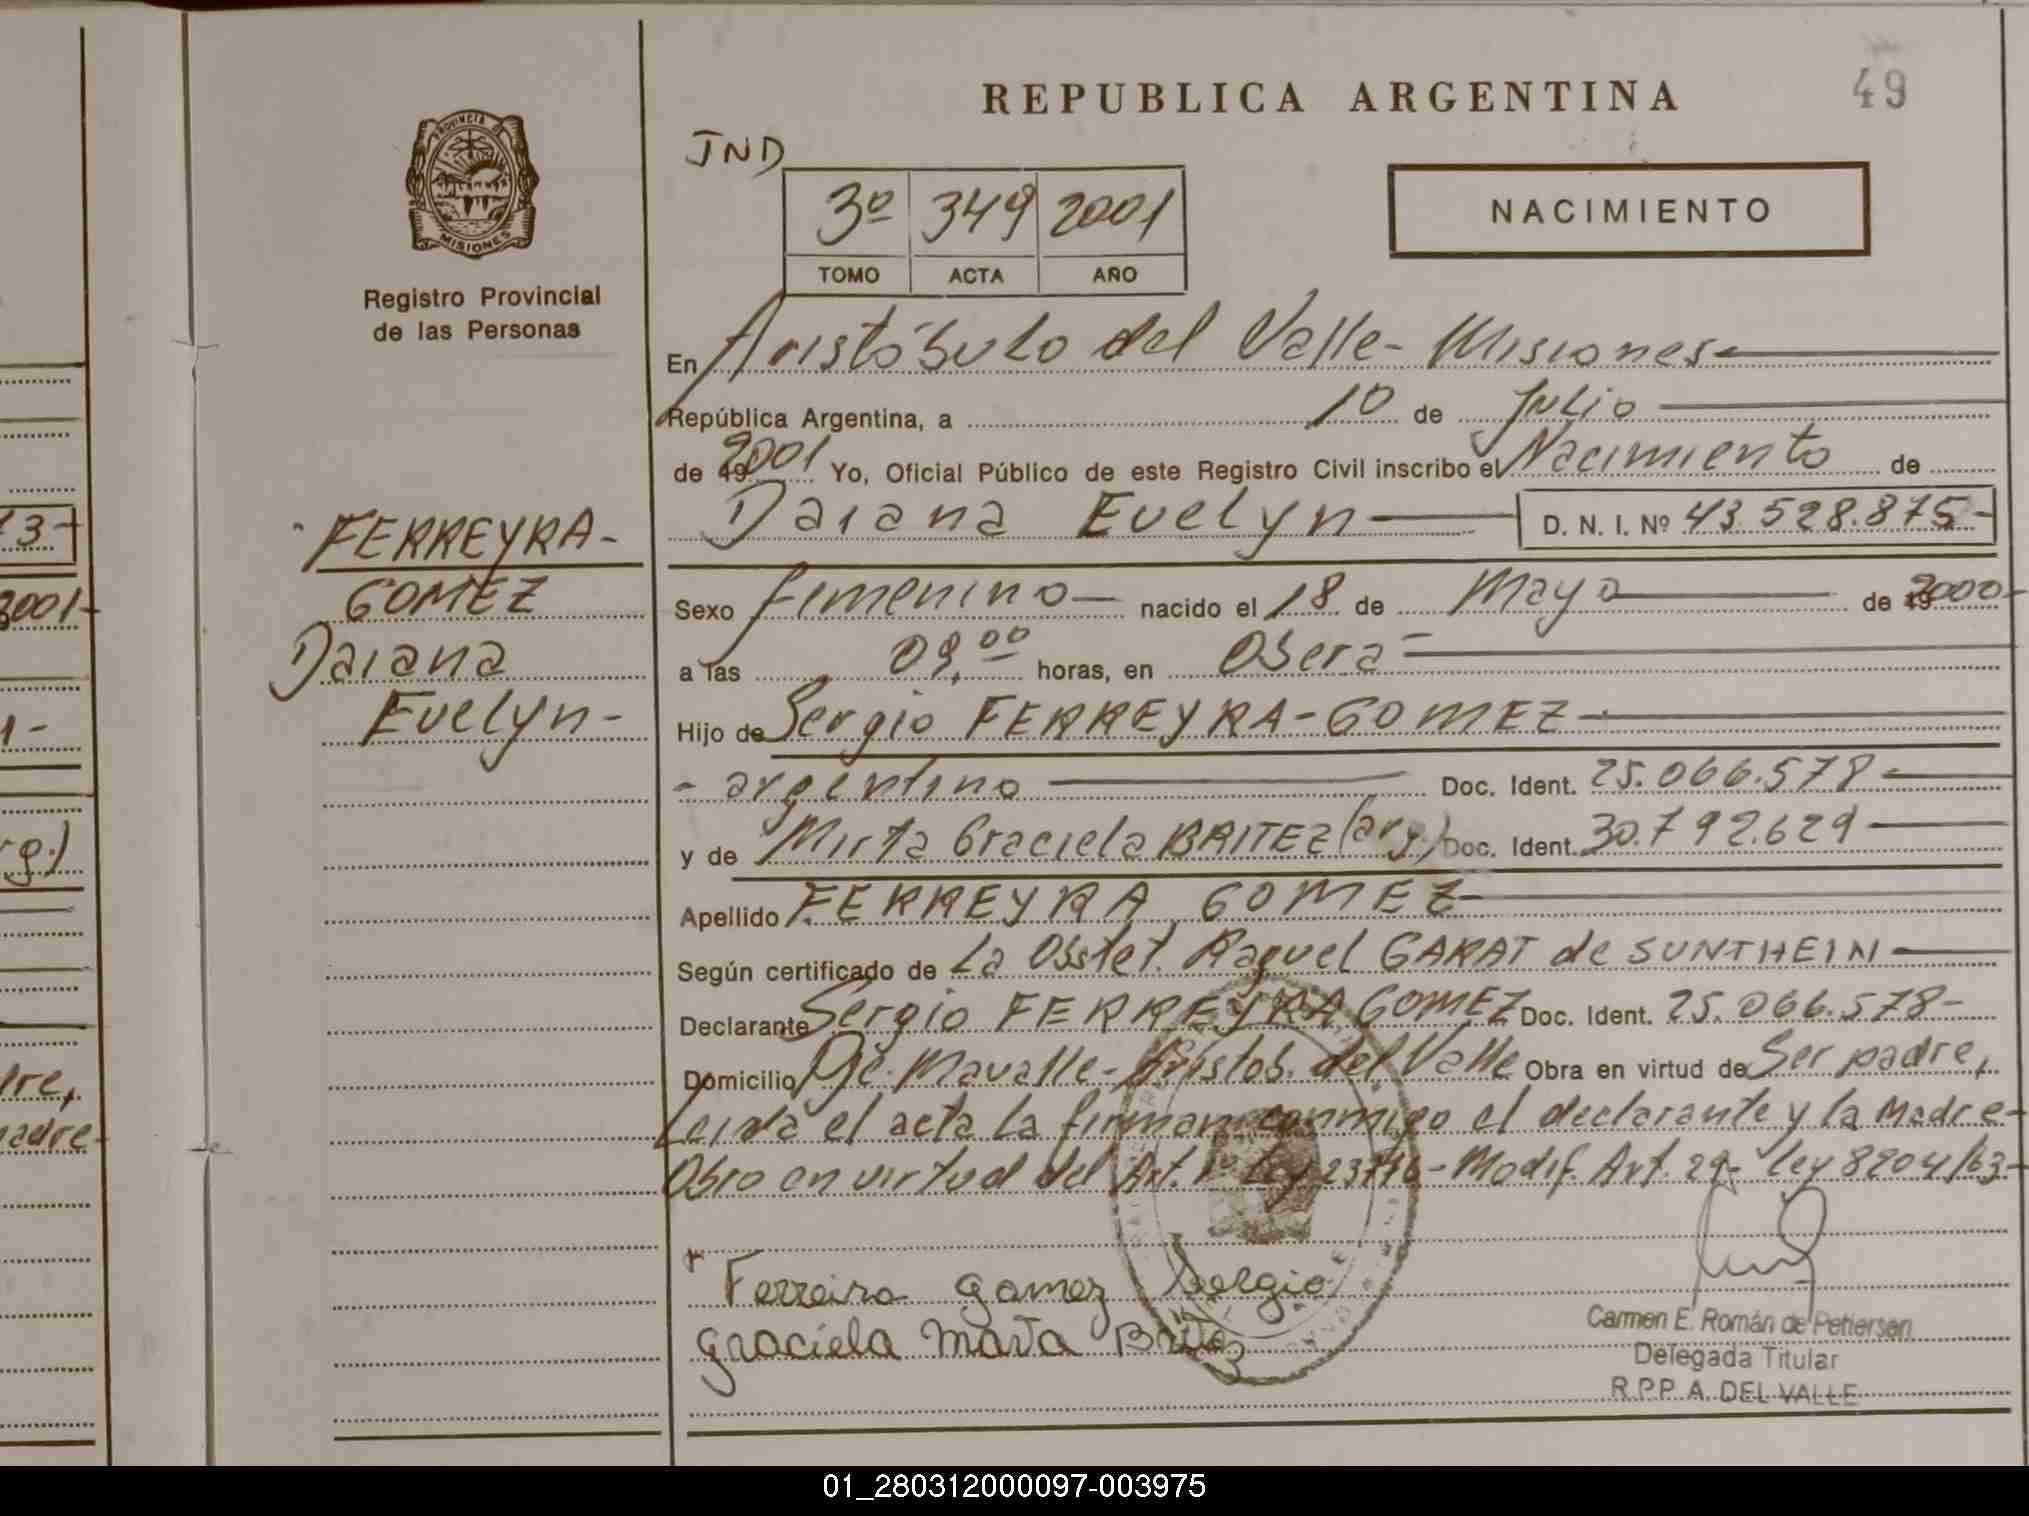 REPUBLICA ARGENTINA
49
PROVINCIA DE
MISIONES
Registro Provincial
de las Personas
IND
3º 349 2001
TOMO ACTA AÑO
NACIMIENTO
En Aristóbulo del Valle- Misiones-
República Argentina, a 10 de Julio
de 19 2001 Yo, Oficial Público de este Registro Civil inscribo el Nacimiento de
Daiana Evelyn D. N. I. Nº 43.528.875-
FERREYRA-
GOMEZ
Daiana
Evelyn-
Sexo femenino nacido el 18 de Mayo de 19 2000-
a las 09,00 horas, en Oberá
Hijo de Sergio FERREYRA-GOMEZ
- argentino Doc. Ident. 25.066.578-
y de Mirta Graciela BRITEZ (arg.) Doc. Ident. 30.792.629
Apellido FERREYRA GOMEZ
Según certificado de La Obstet. Raquel GARAT de SUNTHEIN
Declarante Sergio FERREYRA GOMEZ Doc. Ident. 25.066.578-
Domicilio Pje. Mavalle- Aristob. del Valle Obra en virtud de Ser padre,
Leida el acta la firman conmigo el declarante y la Madre-
Obro en virtud del Art. 1º Ley 23776- Modif. Art. 29- Ley 8204/63-
Ferreira gomez Sergio
graciela Marta Britez
Carmen E. Román de Petersen
Delegada Titular
R.P.P. A. DEL VALLE
13-
2001-
1-
rg.)
dre,
madre-
01_280312000097-003975